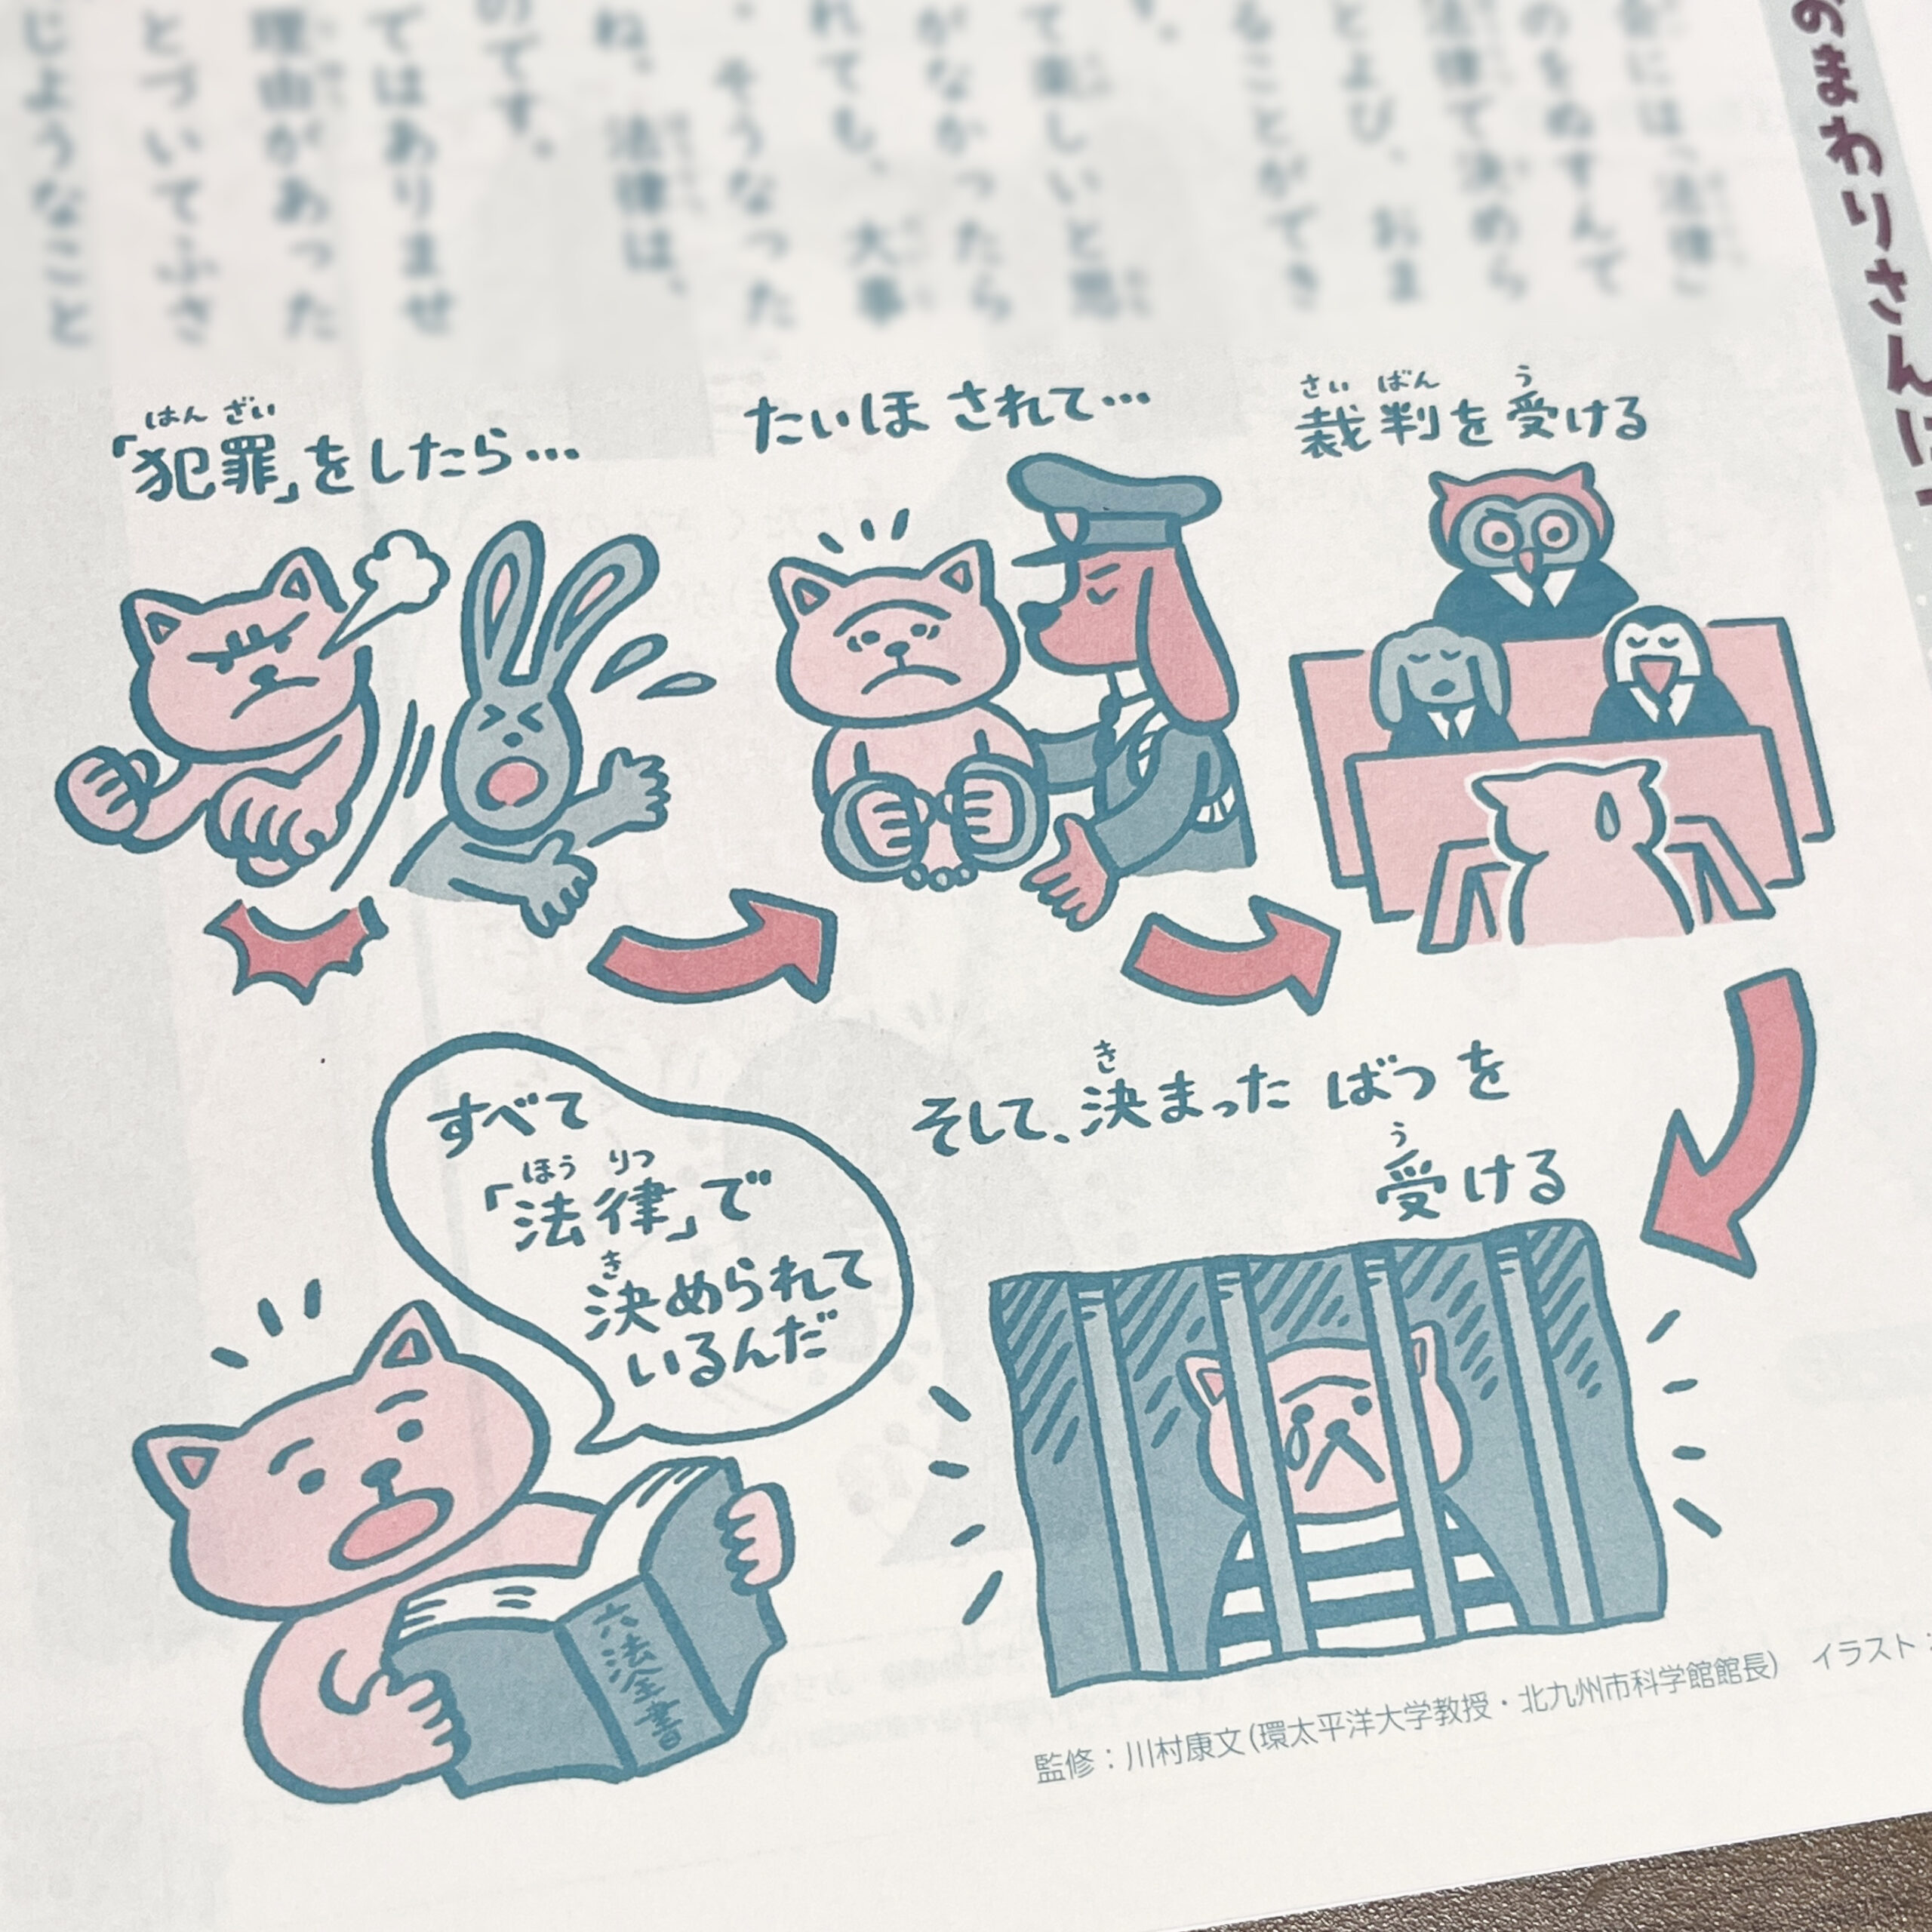 のまわりさんは
法律で決めら
とよび、おま
ることができ
て楽しいと思
がなかったら
れても、大事
そうなった
ね、法律は、
のです。
てはありませ
理由があった
とづいてふさ
じようなこと
はん ざい
「犯罪」をしたら…
たいほ されて…
さい ばん う
裁判を受ける
き
そして、決まった ばつを
う
受ける
すべて
ほう りつ
「法律」で
き
決められて
いるんだ
六法全書
監修：川村康文（環太平洋大学教授・北九州市科学館館長） イラスト：